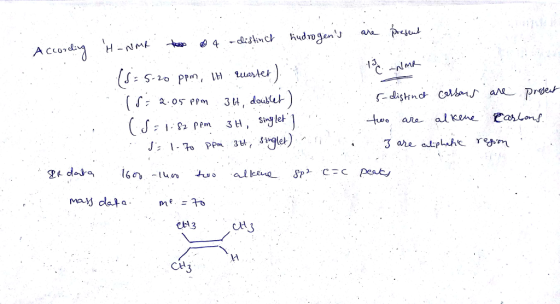 According ¹H-NMR 4 - distinct hydrogen's are present
(δ = 5.20 ppm, 1H quartet)
(δ = 2.05 ppm 3H, doublet)
(δ = 1.82 ppm 3H, singlet)
δ = 1.70 ppm 3H, singlet)
¹³C -NMR
5-distinct carbons are present
two are alkene carbons
3 are aliphatic region
IR data 1600 -1400 two alkene sp² C=C peaks
mass data. m⁺ = 70
CH3 CH3
CH3 H